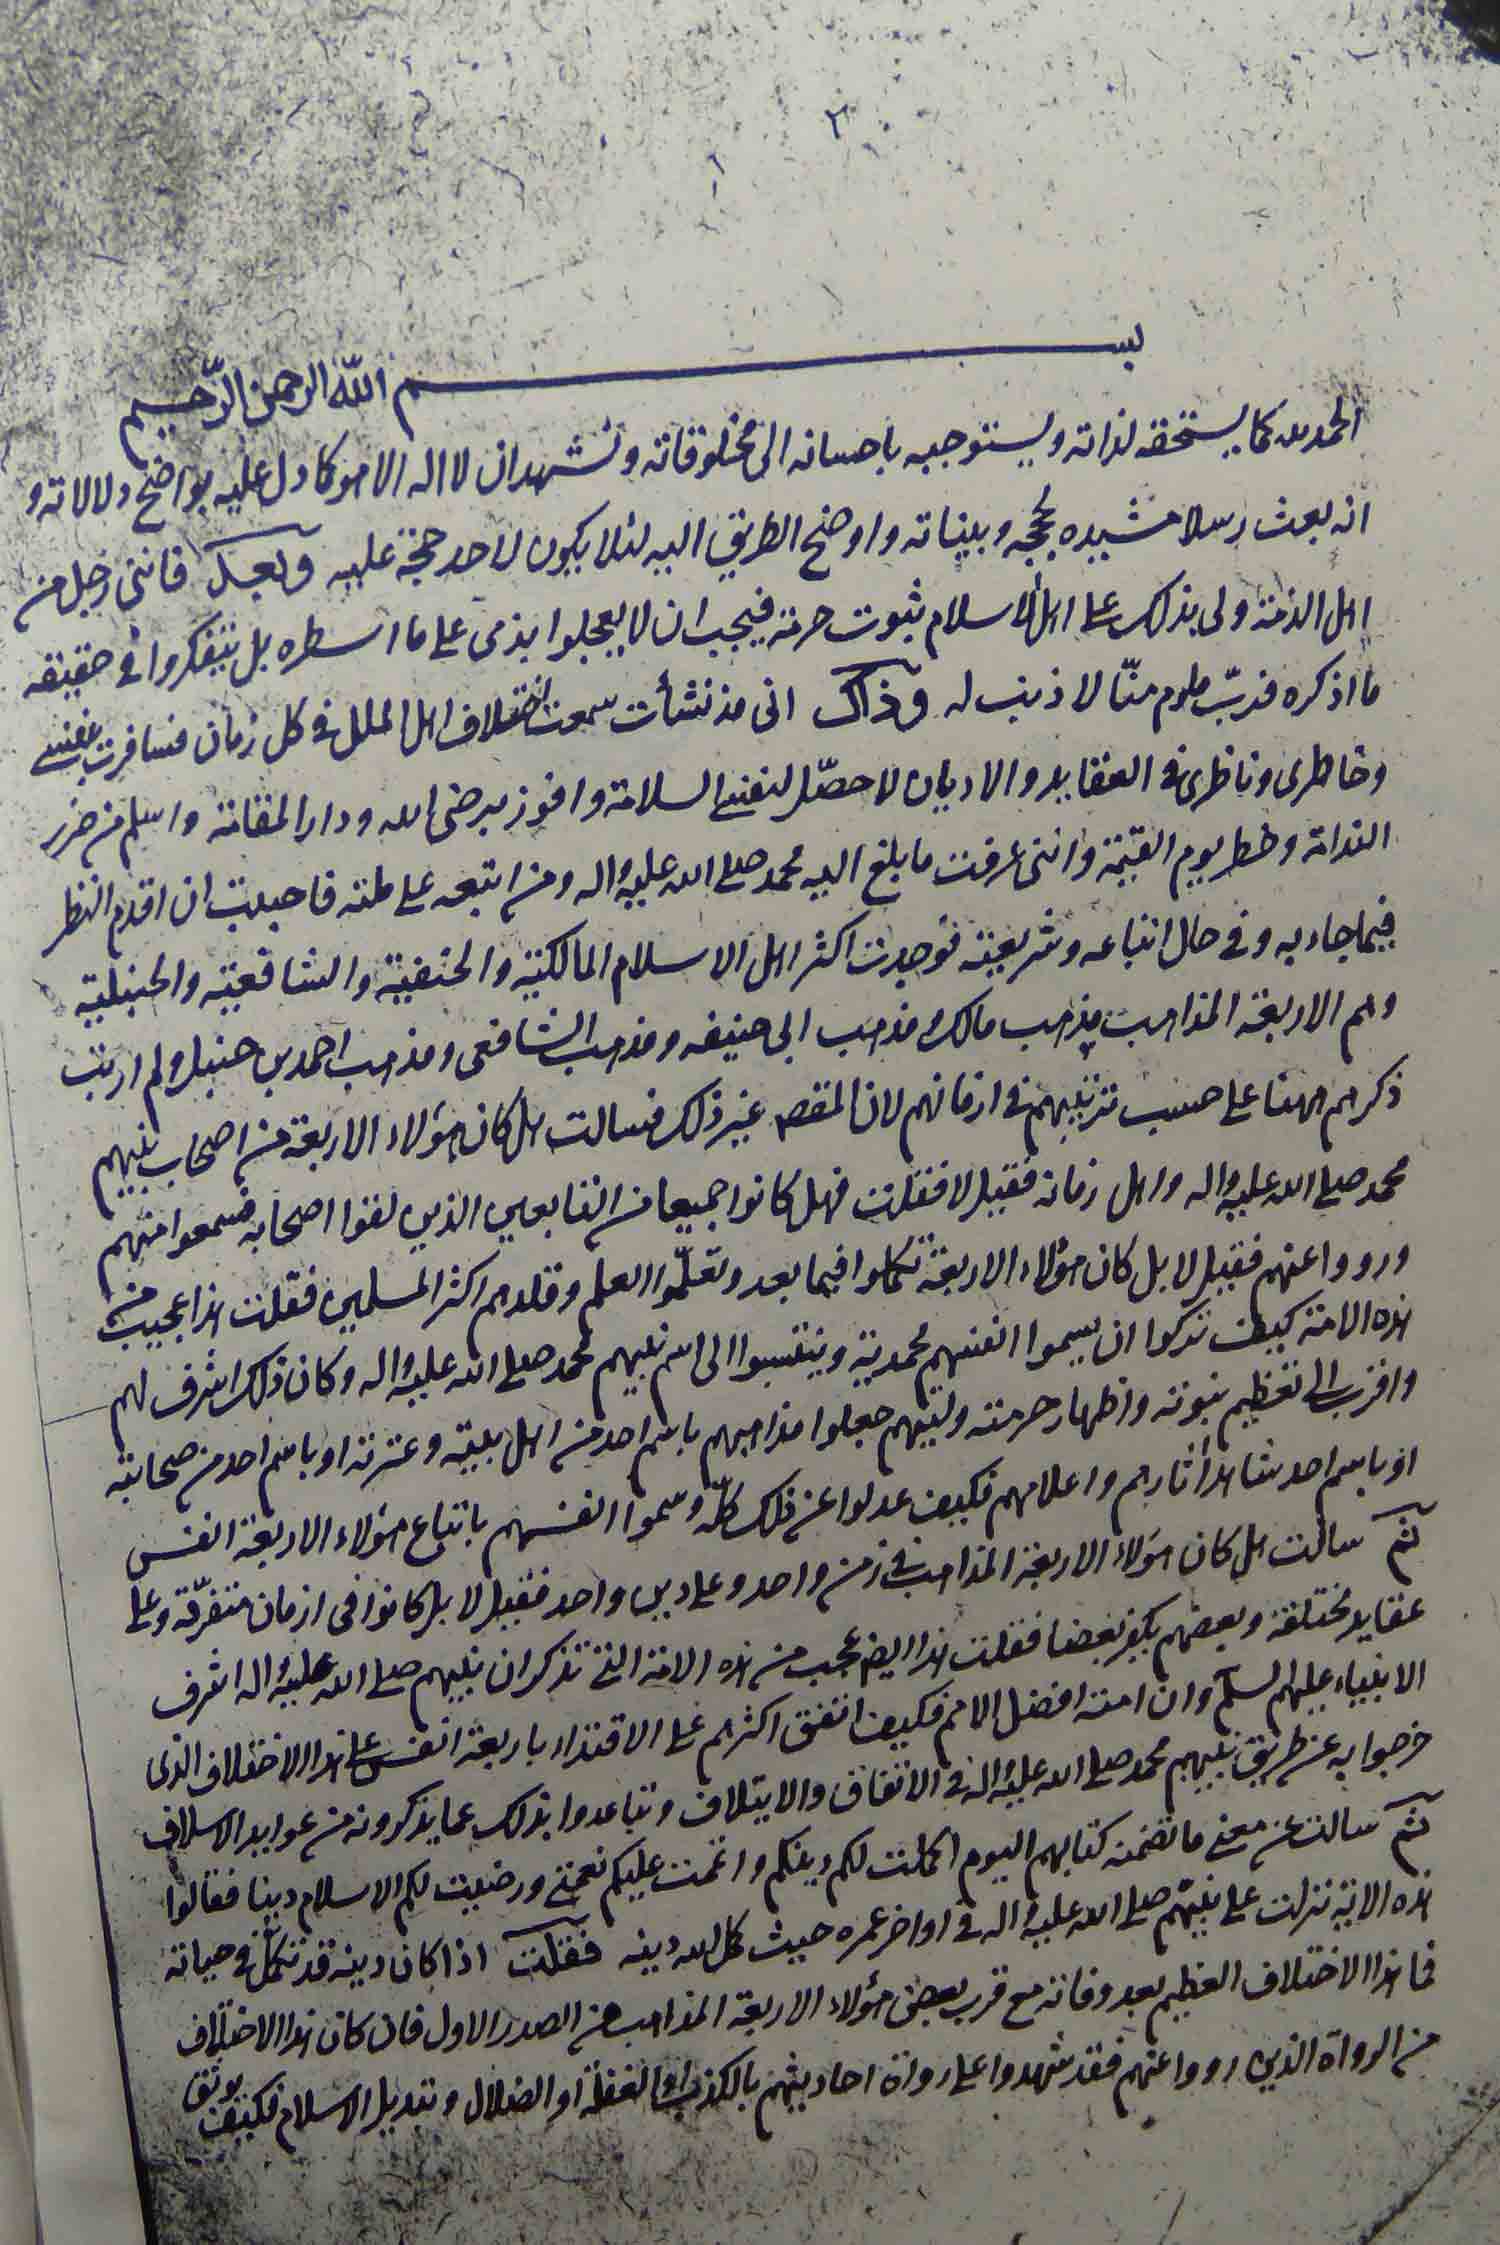 ٢
بسم الله الرحمن الرّحيم
الحمد لله كما يستحقه لذاته ويستوجبه باحسانه الى مخلوقاته ونشهد ان لا اله الا هو كما دل عليه بواضح دلالاته و
انه بعث رسلا مشيده بحججه وبيناته واوضح الطريق اليه لئلا يكون لاحد حجة عليه وبعد فانني رجل من
اهل الذمة ولى بذلك على اهل الاسلام ثبوت حرمة فيجب ان لا يعجلوا بذمى على ما اسطره بل يتفكروا فى حقيقه
ما اذكره فربّ ملوم منّا لا ذنب له وذاك انى مذ نشأت سمعت اختلاف اهل الملل فى كل زمان فسافرت بنفسى
وخاطرى وناظرى فى العقايد والاديان لاحصّل لنفسى السلامة وافوز برضى الله ودار المقامة واسلم من ضرر
الندامة وخطر يوم القيمة واننى عرفت ما بلغ اليه محمد صلى الله عليه واله ومن اتبعه على ملته فاحببت ان اقدم النظر
فيما جاء به وفى حال اتباعه وشريعته فوجدت اكثر اهل الاسلام المالكية والحنفية والشافعية والحنبلية
وهم الاربعة المذاهب مذهب مالك ومذهب ابى حنيفه ومذهب الشافعى ومذهب احمد بن حنبل ولم ارتب
ذكرهم ههنا على حسب ترتيبهم فى ازمانهم لان المقصد غير ذلك فسالت هل كان هؤلاء الاربعة من اصحاب نبيهم
محمد صلى الله عليه واله واهل زمانه فقيل لا فقلت فهل كانوا جميعا من التابعين الذين لقوا اصحابه فسمعوا منهم
ورووا عنهم فقيل لا بل كان هؤلاء الاربعة تكملوا فيما بعد وتعلّموا العلم وقلدهم اكثر المسلمين فقلت هذا عجيب من
هذه الامة كيف تركوا ان يسموا انفسهم محمدية وينتسبوا الى اسم نبيهم محمد صلى الله عليه واله وكان ذلك اشرف لهم
واقرب الى تعظيم نبوته واظهار حرمته وليتهم جعلوا مذاهبهم باسم احد من اهل بيته وعترته او باسم احد من صحابته
او باسم احد شاهد آثارهم واعلامهم فكيف عدلوا عن ذلك كلّه وسموا انفسهم باتباع هؤلاء الاربعة الانفس
ثم سالت هل كان هؤلاء الاربعة المذاهب فى زمن واحد وعلى دين واحد فقيل لا بل كانوا فى ازمان متفرّقة وعلى
عقايد مختلفة وبعضهم يكفر بعضا فقلت هذا ايضا عجب من هذه الامة التى تذكر ان نبيهم صلى الله عليه واله اشرف
الانبياء عليهم السلم وان امته افضل الامم فكيف اتفق اكثرهم على الاقتداء باربعة انفس على هذا الاختلاف الذى
خرجوا به عن طريق نبيهم محمد صلى الله عليه واله فى الاتفاق والايتلاف وتباعدوا بذلك عما يذكرونه من عوايد الاسلاف
ثم سالت عن معنى ما تضمنه كتابهم اليوم اكملت لكم دينكم واتممت عليكم نعمتى ورضيت لكم الاسلام دينا فقالوا
هذه الاية نزلت على نبيّهم صلى الله عليه واله فى اواخر عمره حيث كمل الله دينه فقلت اذا كان دينه قد تكمّل فى حياته
فما هذا الاختلاف العظيم بعد وفاته مع قرب بعض هؤلاء الاربعة المذاهب من الصدر الاول فان كان هذا الاختلاف
من الرواة الذين رووا عنهم فقد شهدوا على رواة احاديثهم بالكذب او الغفلة او الضلال وتبديل الاسلام فكيف يوثق